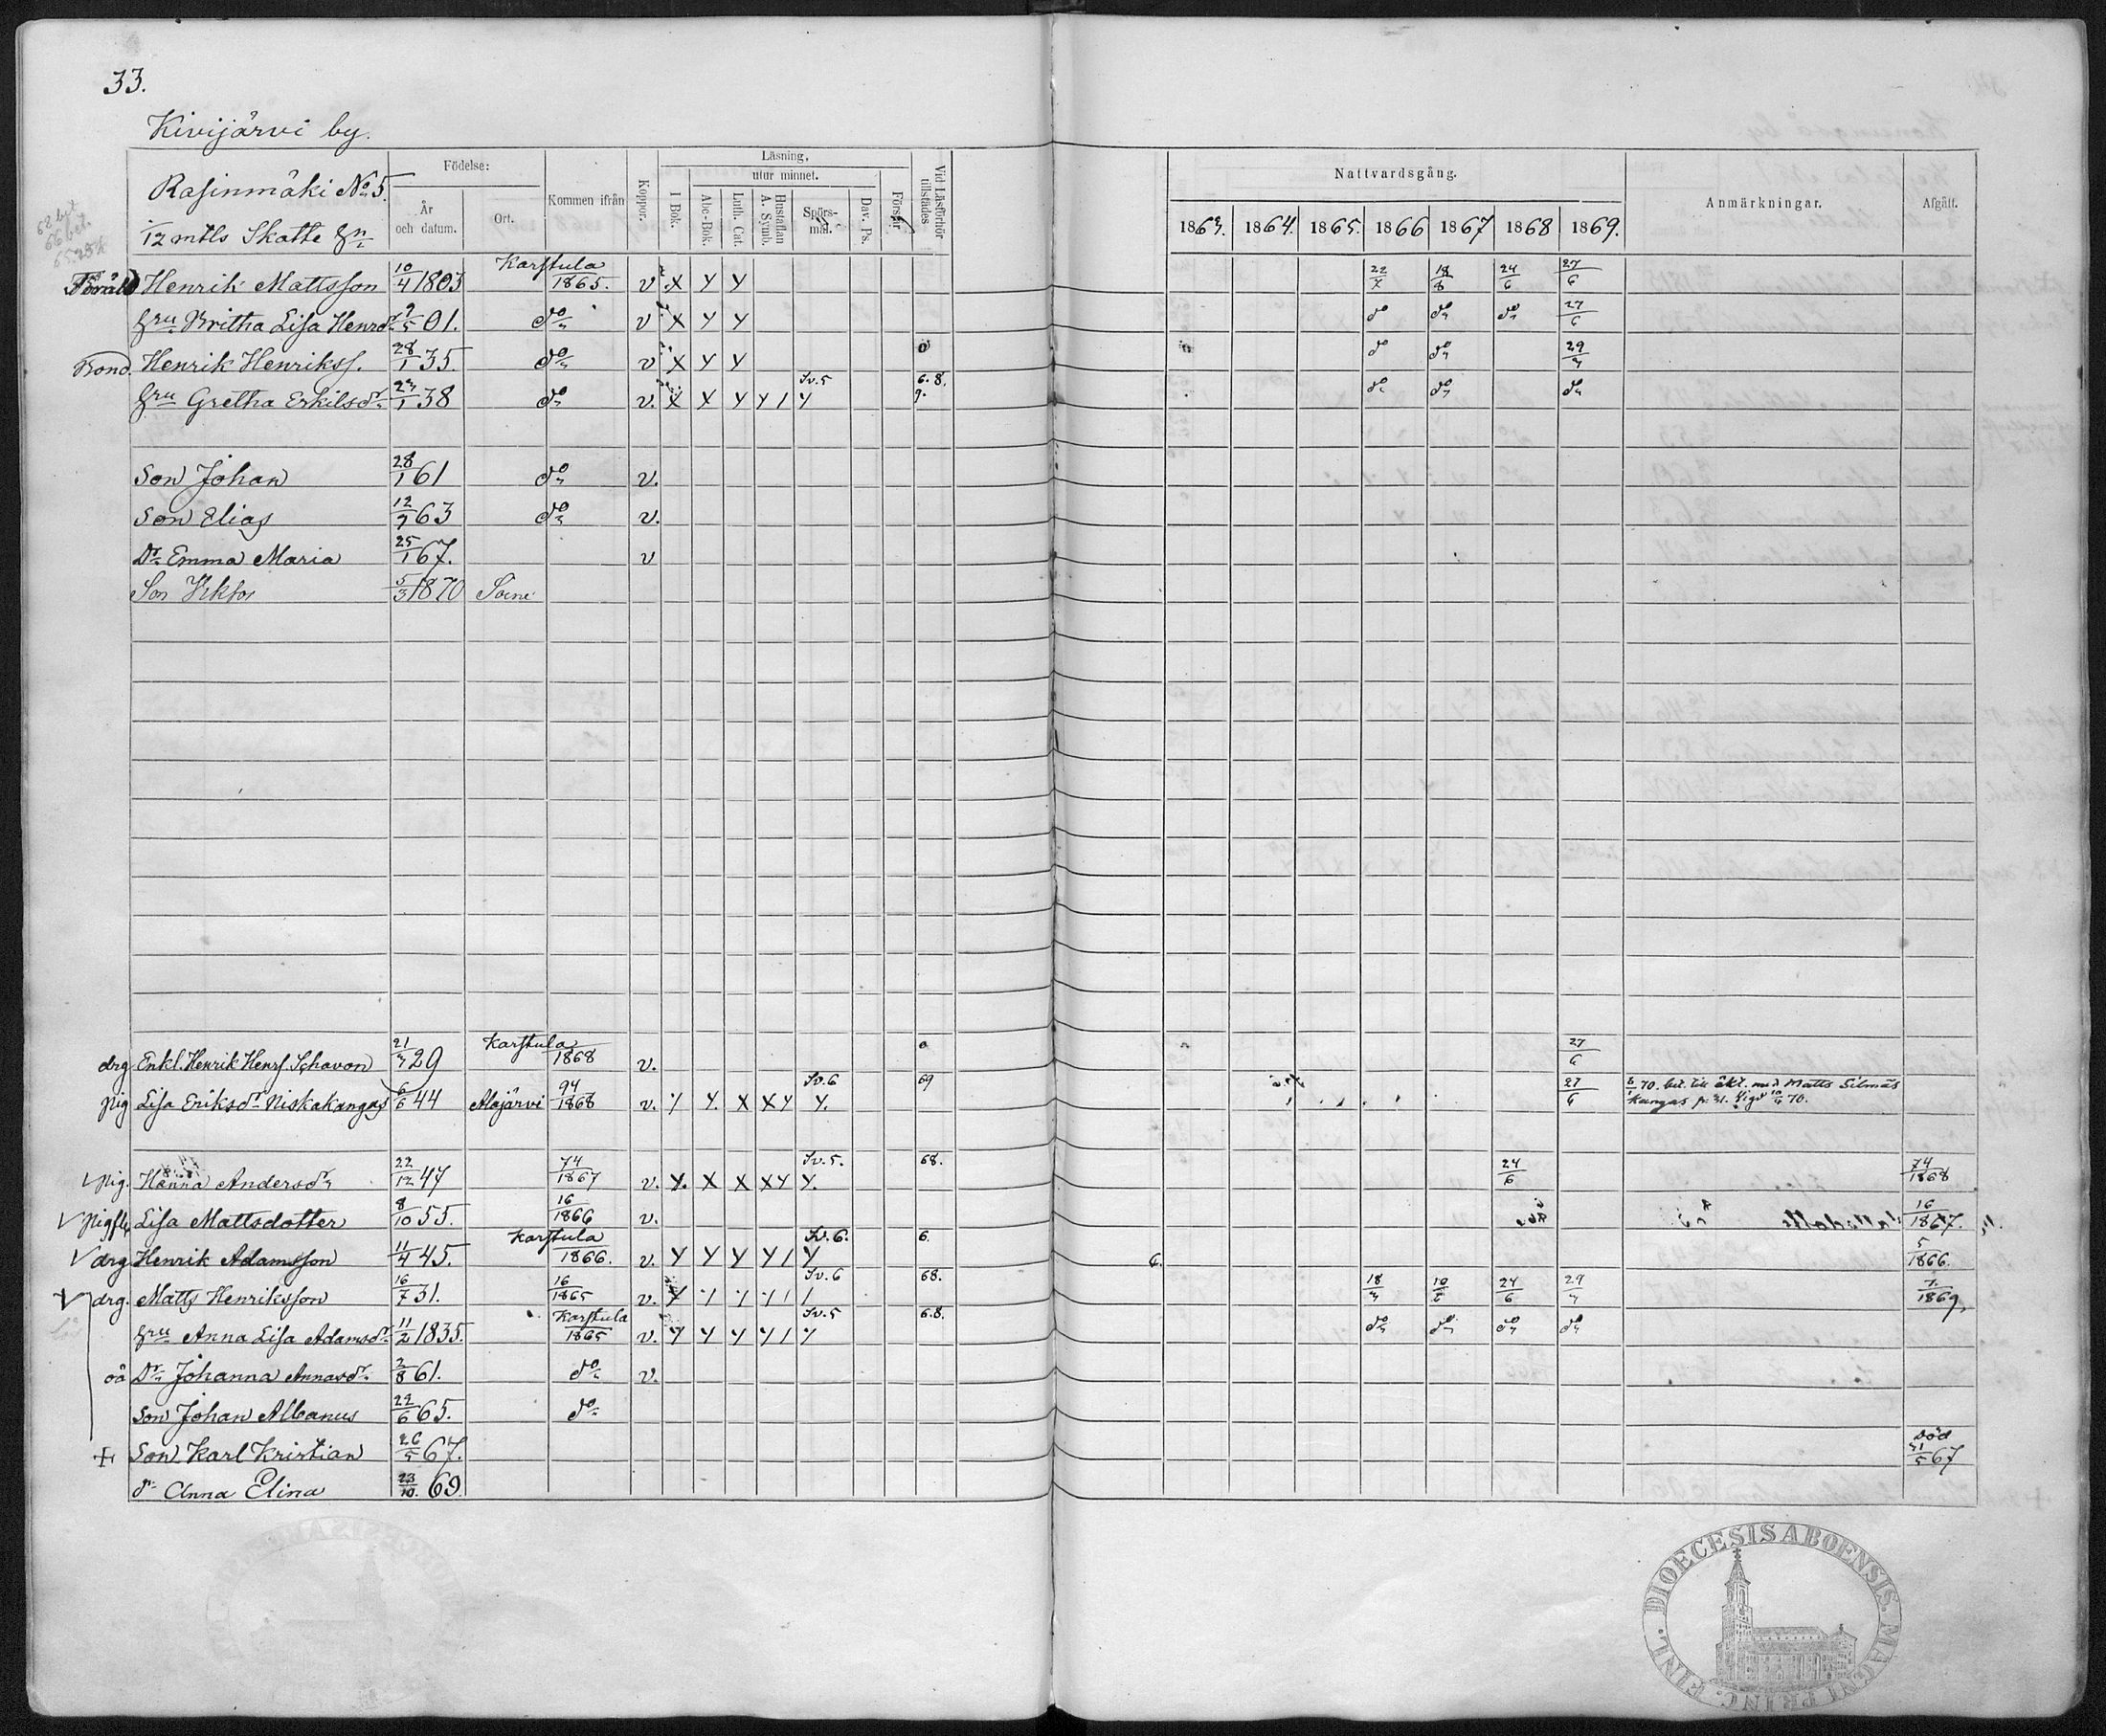 33.
Kivijärvi by.
Rasinmäki No 5.
1/12 mtls Skatte
Födelse:
År och datum.
Ort.
Kommen ifrån
Koppor.
Läsning,
utur minnet.
I Bok.
Abc-Bok.
Luth. Cat.
Hustaflan A. Symb.
Spörs-mål.
Dav. Ps.
Förstår
Vid Läsförhör tillstädes
Nattvardsgång.
1863. 1864. 1865. 1866 1867 1868 1869.
Anmärkningar.
Afgått.
Henrik Mattsson 10/4 1803 Karstula 1865. v X Y Y 22/7 18/8 24/6 27/6
hru Britha Lisa Henrdr 9/5 01. do v X Y Y do do do 27/6
Bond. Henrik Henrikss. 28/1 35. do v X Y Y 0 do do 29/3
hru Gretha Erkilsdr 23/1 38 do v. X X Y Y / Y Sv.5 6.8. 9. do do do
Son Johan 28/1 61 do v.
Son Elias 12/7 63 do v.
Dr Emma Maria 25/1 67. v
Son Viktor 5/3 1870 Soini
drg Enkl. Henrik Henrs. Schavon 21/3 29 Karstula 1868 v. 0 27/6
pig Lisa Eriksdr Niskakangas 6/6 44 Alajärvi 94/1868 v. Y Y X X Y Y. Sv.6 69 27/6 70. bet. till äkt. med Matts Silmäs
kangas
√ pig. Hanna Andersdr 22/12 47 74/1867 v. Y. X X X Y Y. Sv.5. 68. 24/6 74/1868
√ Lisa Mattsdotter 8/10 55. 16/1866 v. 16/1867.
√ drg Henrik Adamsson 11/4 45. Karstula 1866. v. Y Y Y Y / Y Sv.6. 6. 6. 5/1866.
√ drg. Matts Henriksson 16/7 31. 16/1865 v. Sv.6 68. 18/3 10/6 24/6 29/3 7/1869,
hru Anna Lisa Adamsdr 11/2 1835. Karstula 1865 v. Y Y Y Y / Y Sv.5 6.8. do do do do
oä Dr Johanna Annasdr 2/8 61. do v.
Son Johan Albanus 22/6 65. do
+ Son Karl Kristian 26/5 67. Död 31/5 67
dr Anna Elina 23/10. 69.
DIOECESIS ABOENSIS. MAGNI PRINC. FINL.